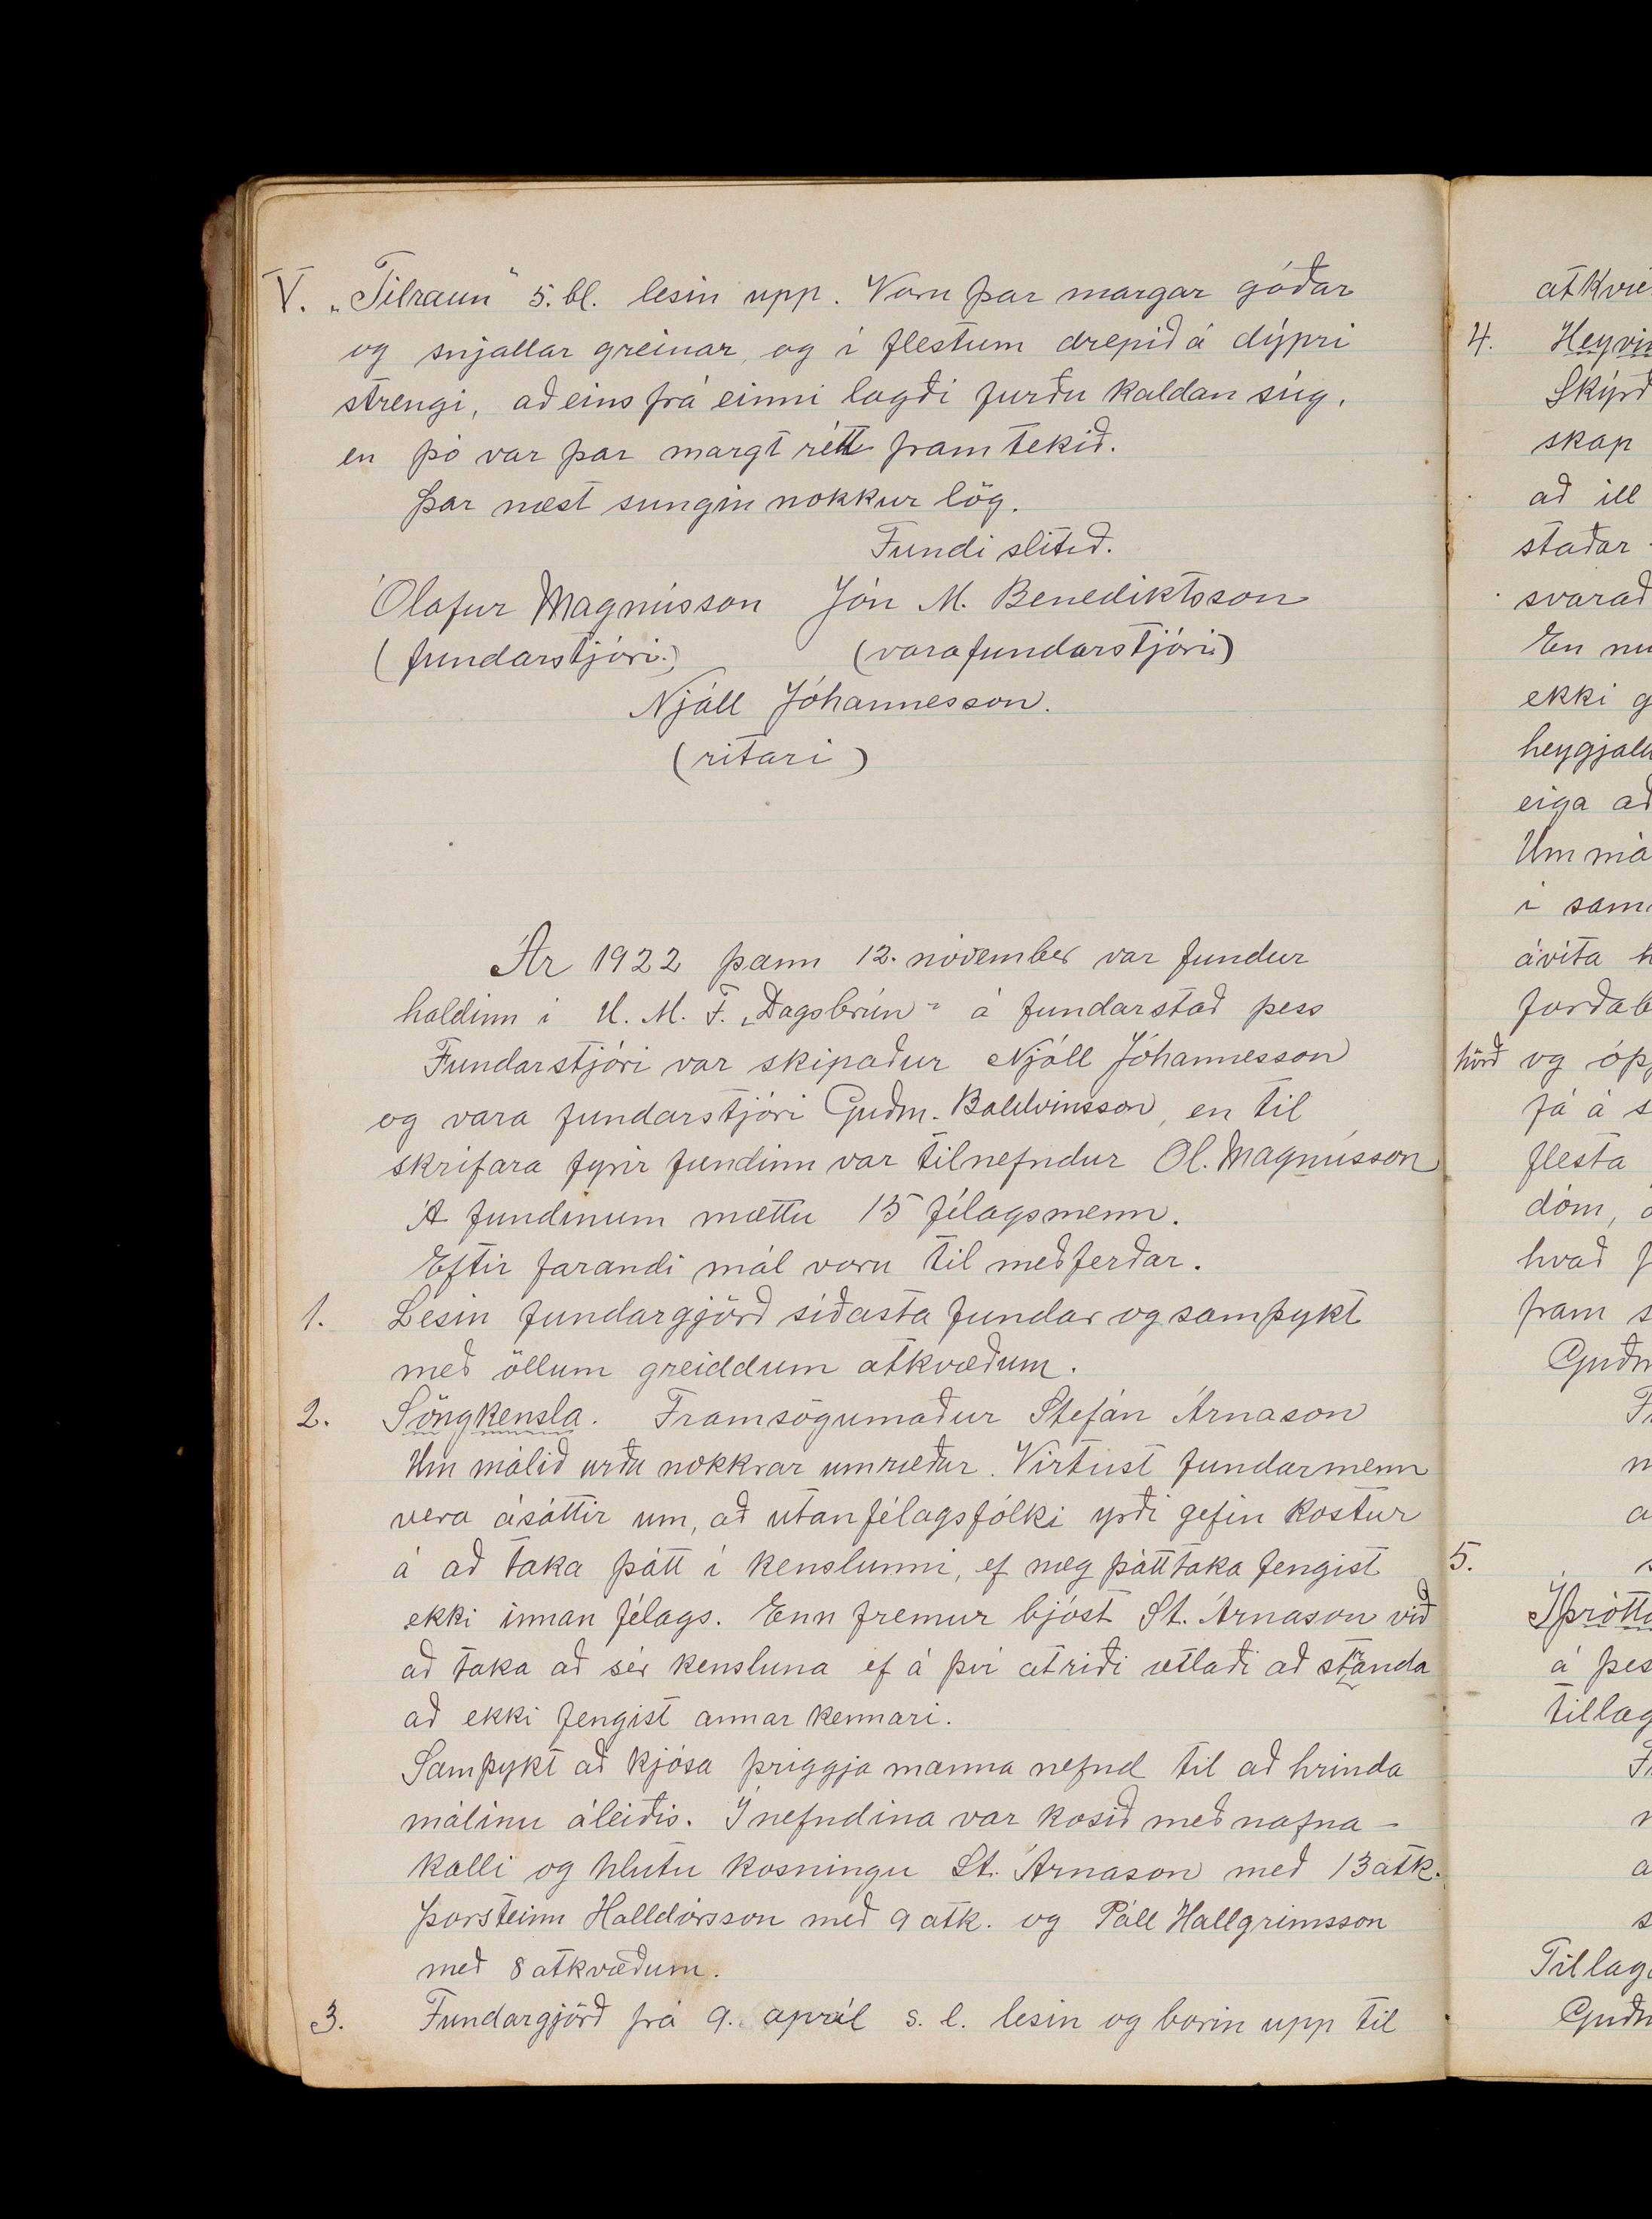 V. „Tilraun" 5. bl. lesin upp. Voru þar margar góðar
og snjallar greinar, og í flestum drepið á dýpri
strengi, aðeins frá einni lagði furðu kaldan súg,
en þó var þar margt rétt framtekið.
Þar næst sungin nokkur lög.
Fundi slitið.
Ólafur Magnússon Jón M. Benediktsson
(fundarstjóri.) (varafundarstjóri)
Njáll Jóhannesson.
(ritari)
Ár 1922 þann 12. nóvember var fundur
haldinn í U. M. F. „Dagsbrún" á fundarstað þess
Fundarstjóri var skipaður Njáll Jóhannesson
og vara fundarstjóri Guðm. Baldvinsson, en til
skrifara fyrir fundinn var tilnefndur Ól. Magnússon
Á fundinum mættu 15 félagsmenn.
Eftir farandi mál voru til meðferðar.
1. Lesin fundargjörð síðasta fundar og samþykt
með öllum greiddum atkvæðum.
2. Söngkensla. Framsögumaður Stefán Árnason
Um málið urðu nokkrar umræður. Virtust fundarmenn
vera ásáttir um, að utanfélagsfólki yrði gefin kostur
á að taka þátt í kenslunni, ef næg þátttaka fengist
ekki innan félags. Enn fremur bjóst St. Árnason við
að taka að sér kensluna ef á því atriði ætlaði að stranda
að ekki fengist annar kennari.
Samþykt að kjósa þriggja manna nefnd til að hrinda
málinu áleiðis. Í nefndina var kosið með nafna-
kalli og hlutu kosningu St. Árnason með 13 atk.
Þorsteinn Halldórsson með 9 atk. og Páll Hallgrímsson
með 8 atkvæðum.
3. Fundargjörð frá 9. apríl s. l. lesin og borin upp til
4.
skap
að ill
staðar
svarað
ekki
eiga
í
ávíta
hörð og
fá á
flesta
dóm,
hvað
fram
5.
á